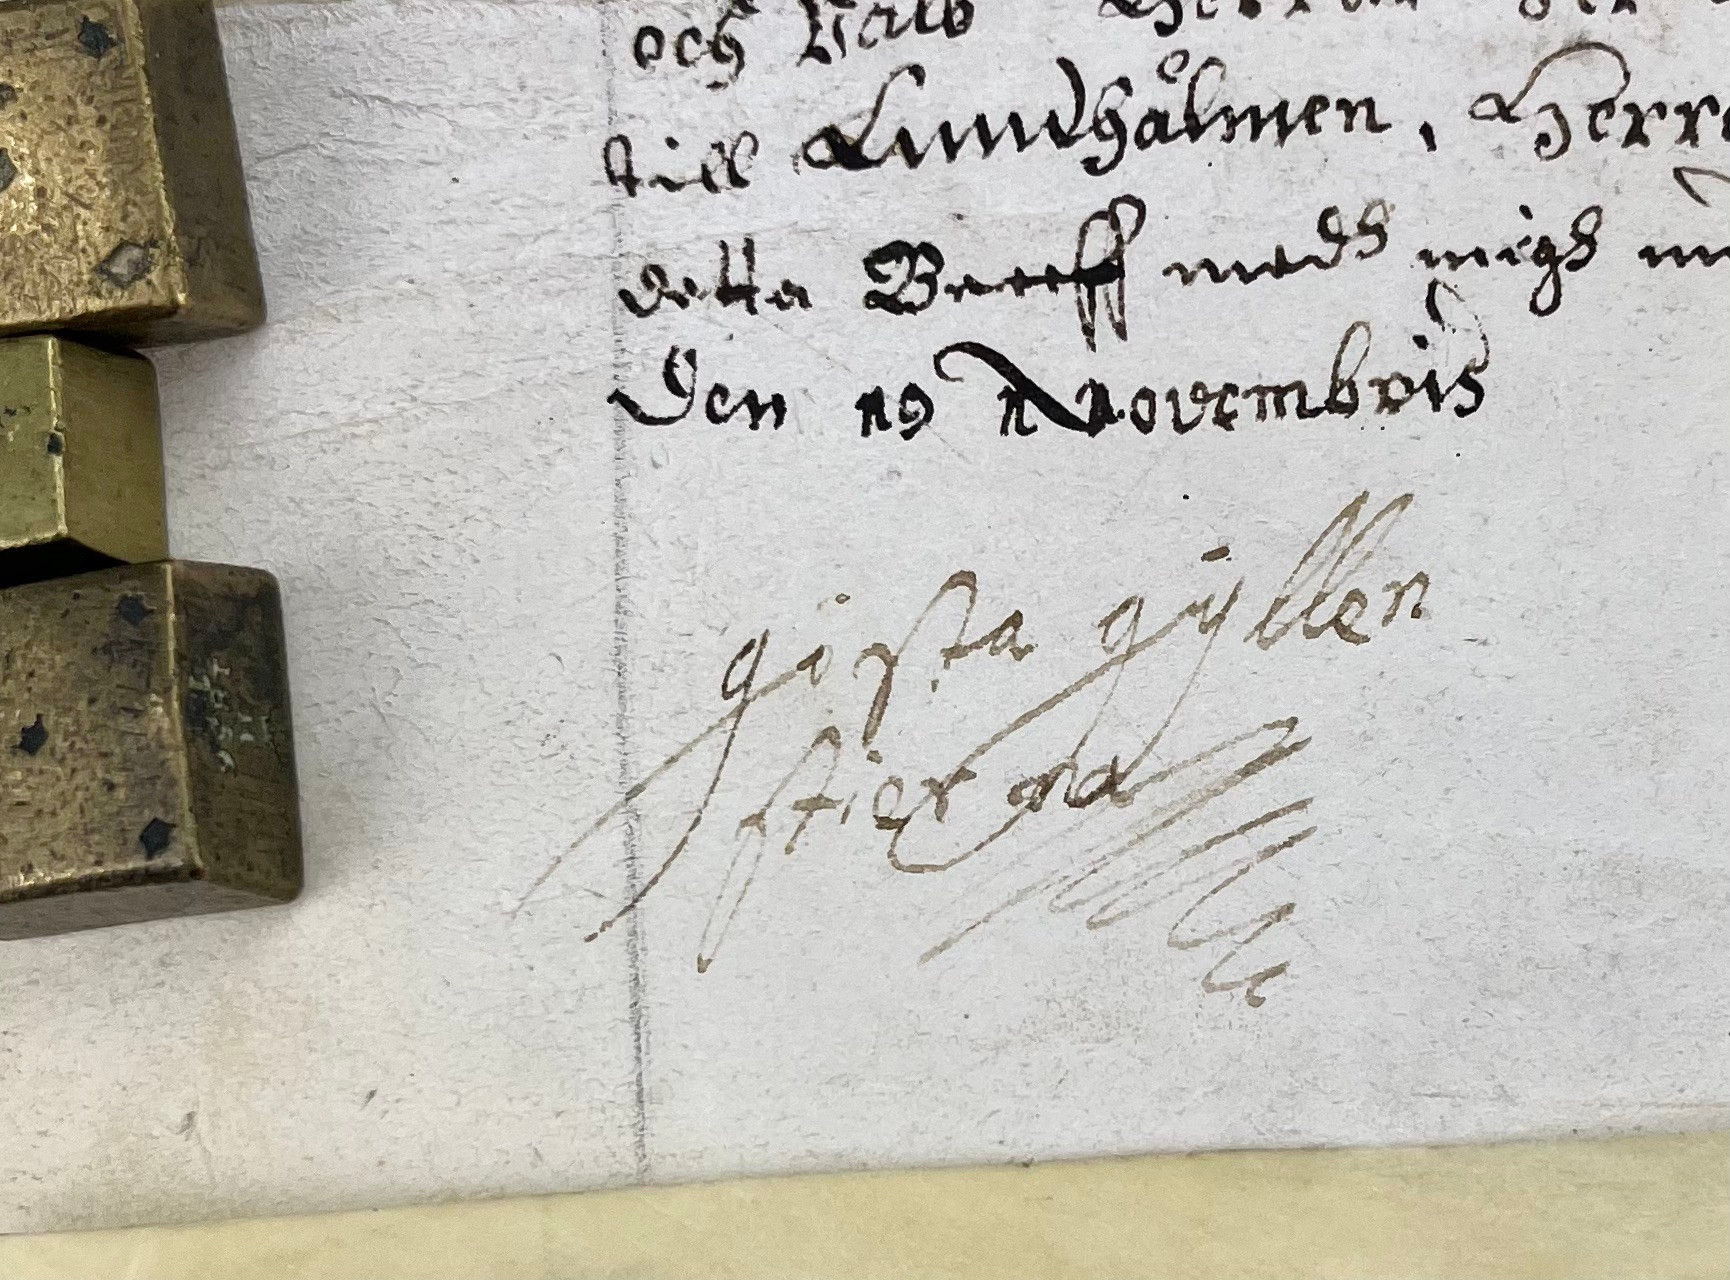 och
till Lundhålmen, Herre
detta Breeff medh migh
Den 19 Novembris
giösta gÿllen
stierna